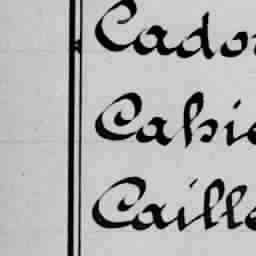 Cador
Cahie
Caille